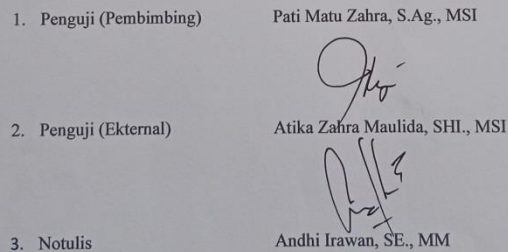 1. Penguji (Pembimbing) Pati Matu Zahra, S.Ag., MSI
2. Penguji (Ekternal) Atika Zahra Maulida, SHI., MSI
3. Notulis Andhi Irawan, SE., MM